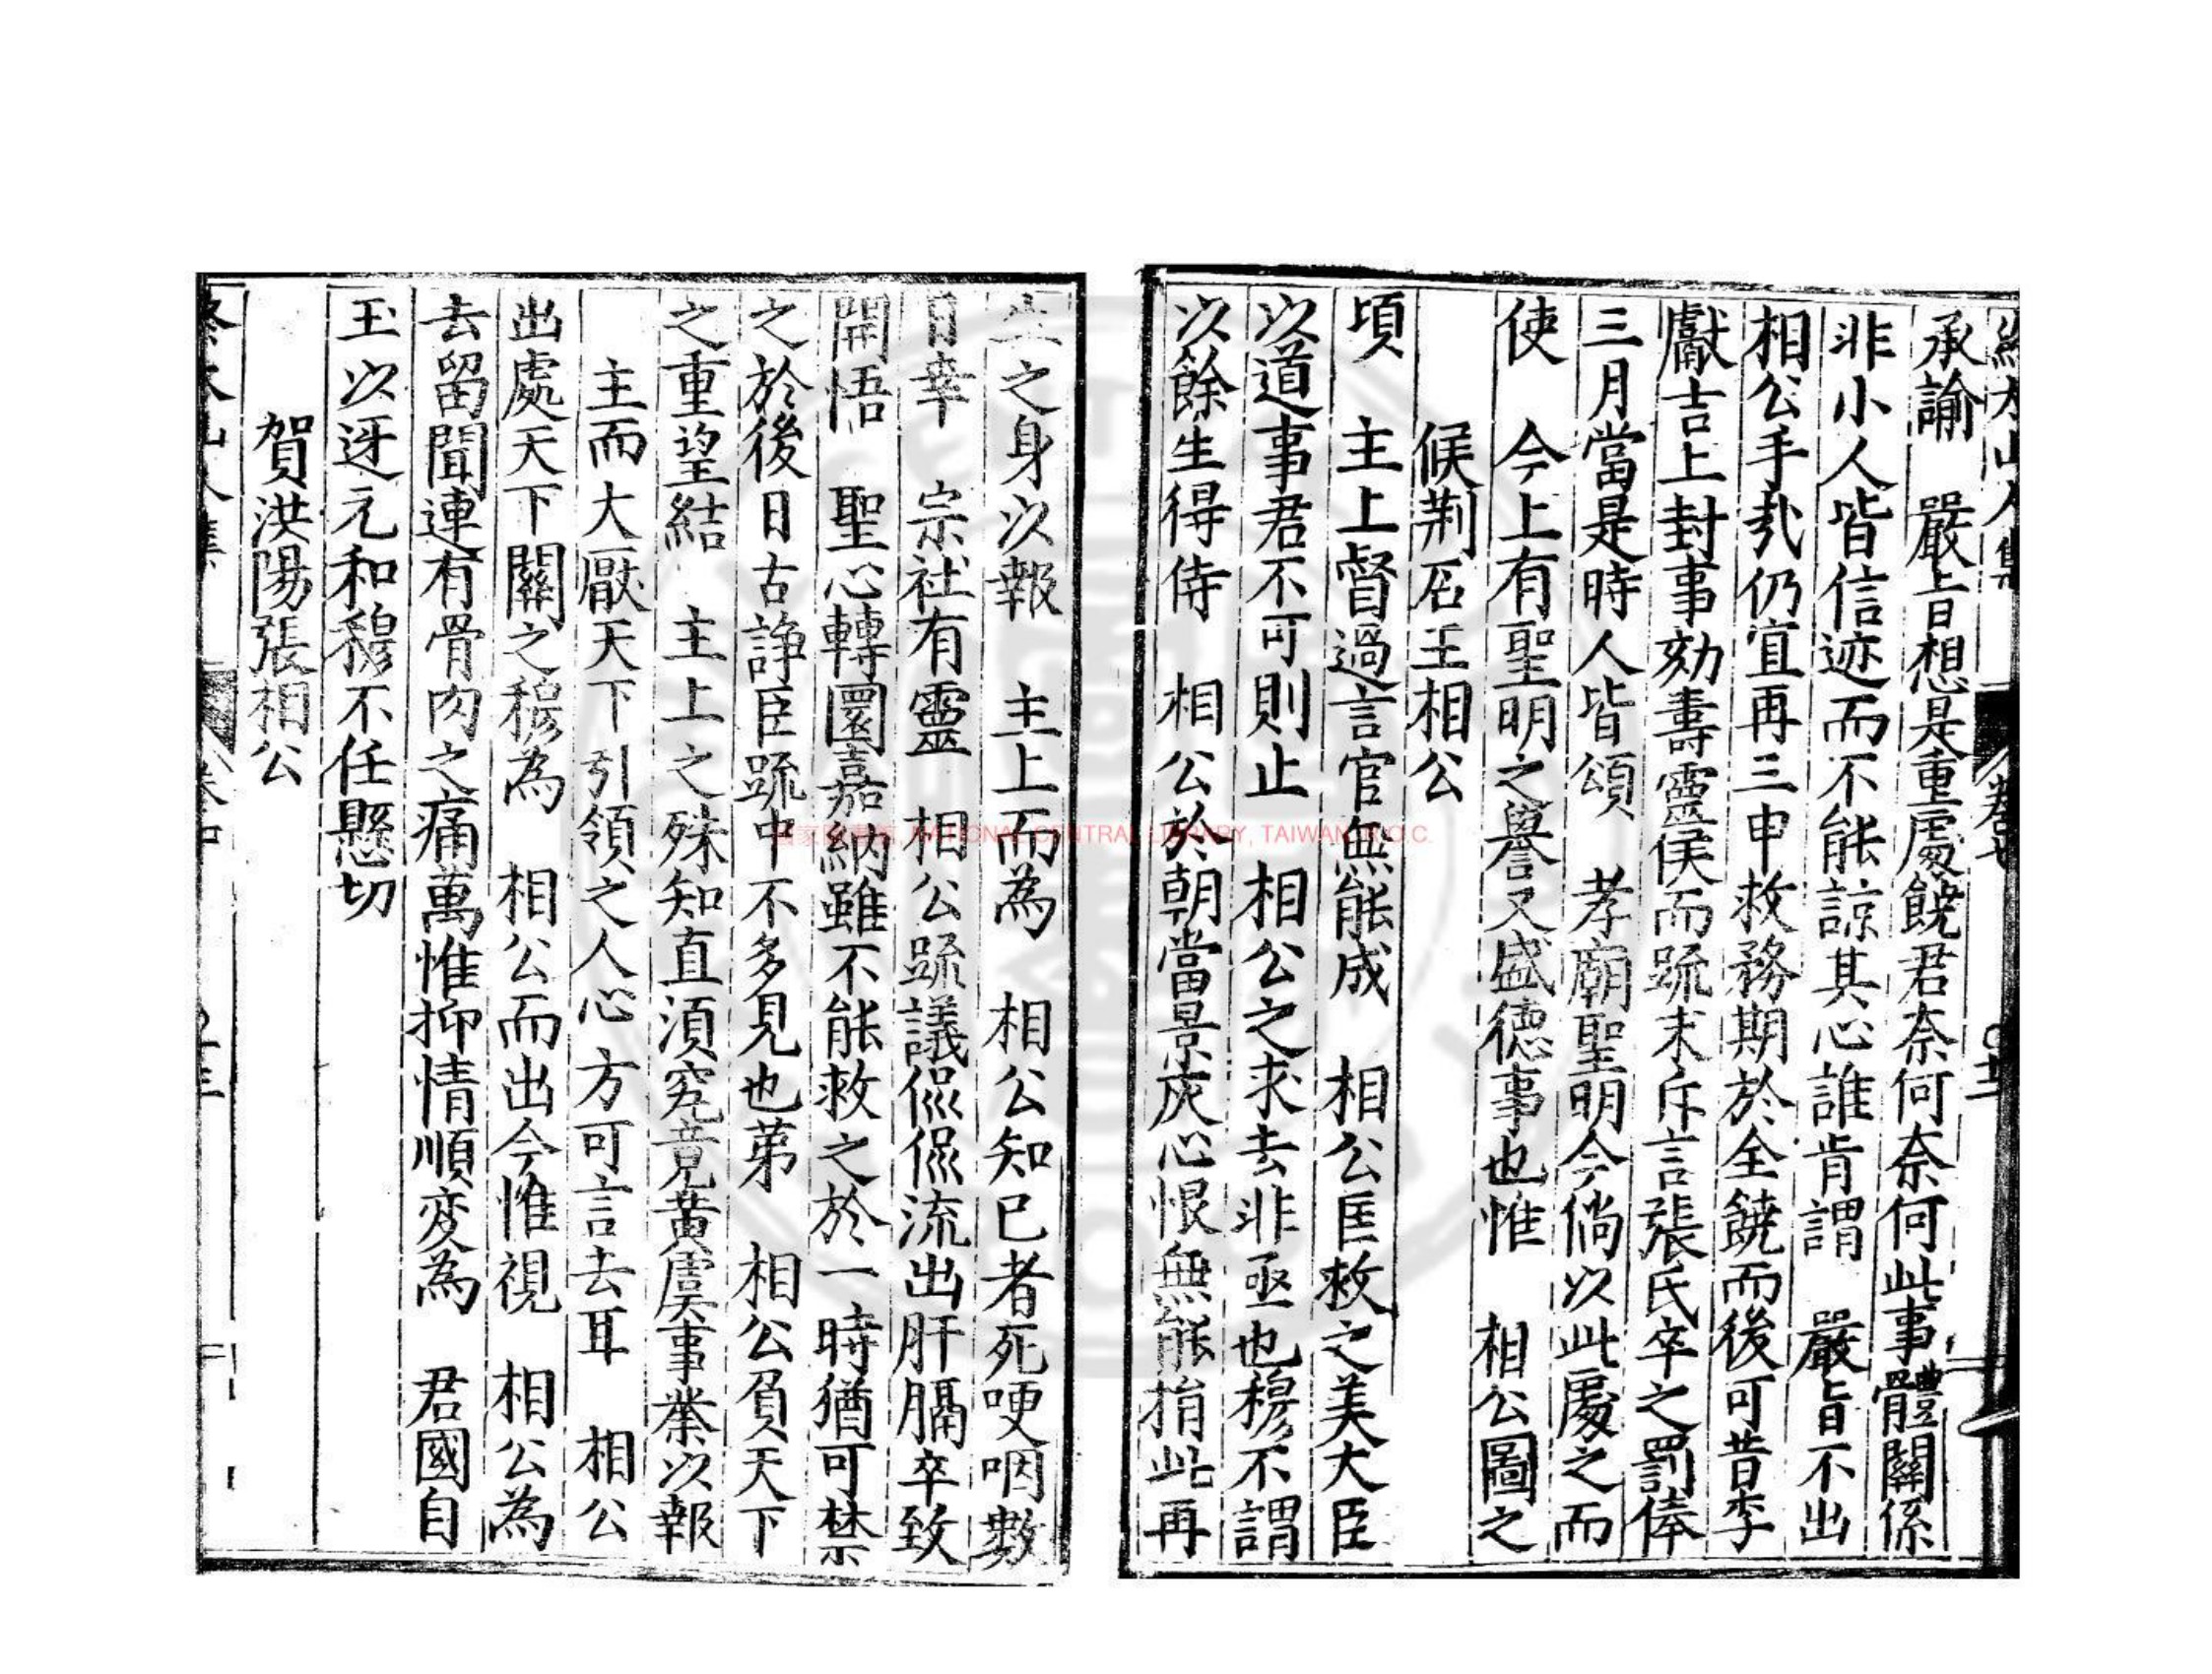 承諭　嚴旨想是重處饒君奈何奈何此事體關係
非小人皆信迹而不能諒其心誰肯謂　嚴旨不出
相公手㢤仍宜再三申救務期於全饒而後可昔李
獻吉上封事効壽靈侯而疏末斥言張氏卒之罰俸
三月當是時人皆頌　孝廟聖明今倘以此處之而
使　今上有聖明之譽又盛德事也惟　相公圖之
候荆石王相公
頃　主上督過言官無能成　相公匡救之美大臣
以道事君不可則止　相公之求去非亟也穆不謂
以餘生得侍　相公於朝當景灰心恨無能捐此再
生之身以報　主上而為　相公知已者死哽咽數
日幸　宗社有靈　相公疏議傫傫流出肝膈卒致
開悟　聖心轉圜嘉納雖不能救之於一時猶可禁
之於後日古諍臣疏中不多見也苐　相公負天下
之重望結　主上之殊知直須究竟黃虞事業以報
主而大厭天下引領之人心方可言去耳　相公
出處天下關之穆為　相公而出今惟視　相公為
去留聞連有骨肉之痛萬惟抑情順变為　君國自
玉以迓元和穆不任懸切
賀洪陽張相公
國家圖書館, NATIONAL CENTRAL LIBRARY, TAIWAN, R.O.C.